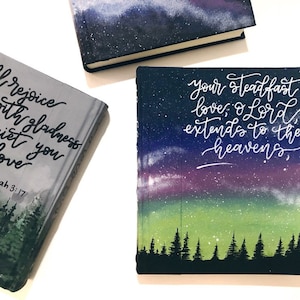 rejoice
with gladness
quiet you
love
ah 3:17
your steadfast
love, o Lord,
extends to the
heavens,